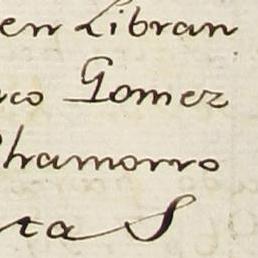 en Libran
co Gomez
Chamorro
ta S